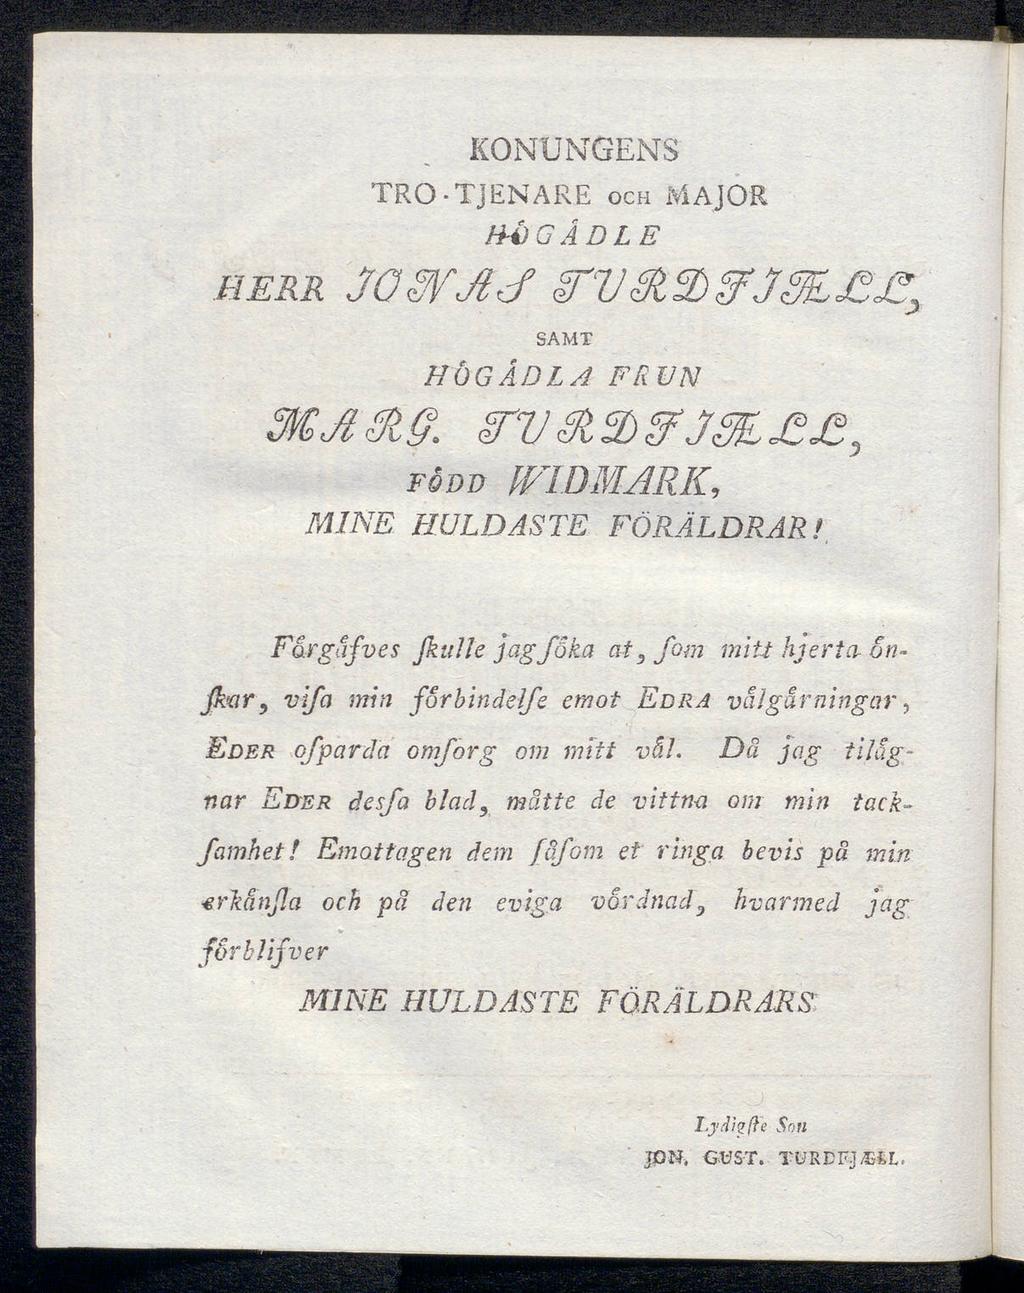 KONUNGENS
TRO-TJENARE OCH MAJOR
HÖGÅDLE
HERR JONAS TURDFJÆLL,
SAMT
HÖGÅDLA FRUN
MARG. TURDFJÆLL,
FÖDD WIDMARK,
MINE HULDASTE FÖRÄLDRAR!
Fårgåfves ſkulle jag ſöka at, ſom mitt hjerta ön-
ſkar, viſa min förbindelſe emot EDRA vålgårningar,
EDER oſparda omſorg om mitt vål. Då jag tilåg-
nar EDER desſa blad, måtte de vittna om min tack-
ſamhet! Emottagen dem ſåſom et ringa bevis på min
erkånſla och på den eviga vördnad, hvarmed jag
förblifver
MINE HULDASTE FÖRÄLDRARS
Lydigſte Son
JON. GUST. TURDFJÆLL.